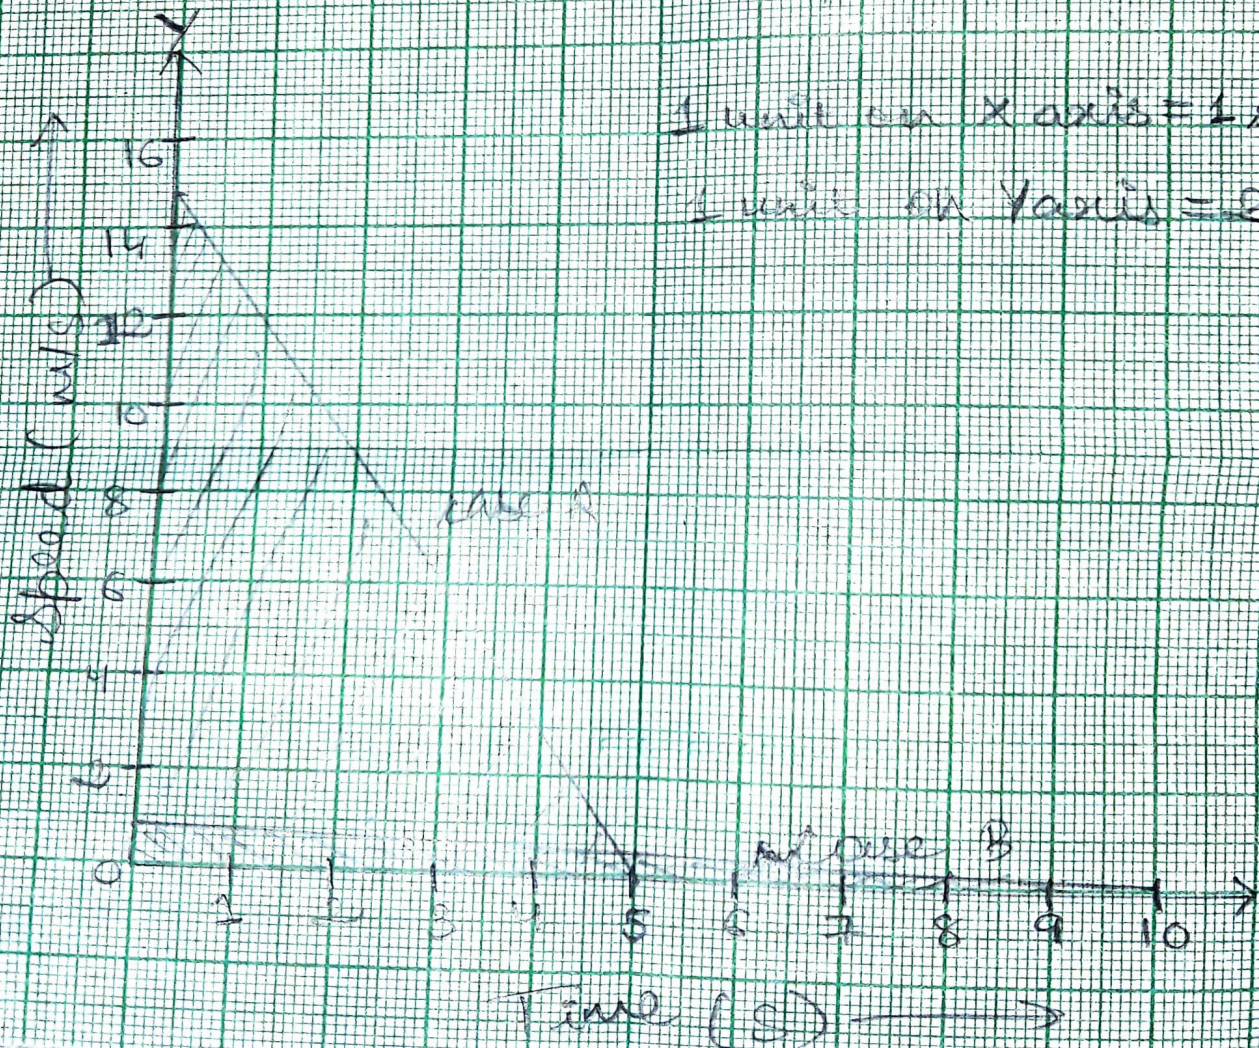 Y
1 unit on X axis = 1
1 unit on Y axis = 2
16
14
12
10
8
6
4
2
0
Speed (m/s)
case A
case B
1 2 3 4 5 6 7 8 9 10
Time (s)